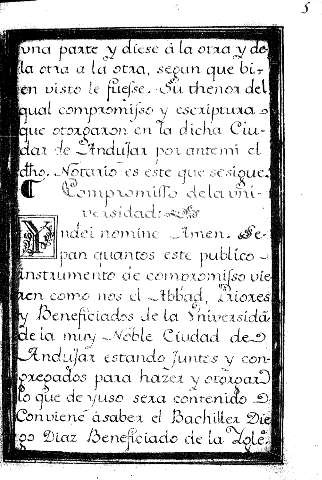 5
vna parte y diese á la otra y de
la otra a la otra, segun que bi-
en visto le fuesse. Su thenor del
qual compromisso y escriptura
que otorgaron en la dicha Ciu-
dad de Andujar por antemi el
dho. Notario es este que sesigue.
¶ Compromisso dela vni-
versidad:
Yndei nomine Amen. Se-
pan quantos este publico
instrumento de compromisso vie-
ren como nos el Abbad, Priores
y Beneficiados de la Vniversidã
de la muy Noble Ciudad de
Andujar estando Juntes y con-
gregados para hazer y otorgar
lo que de yuso sera contenido
Conviene ásaber el Bachiller Die
go Diaz Beneficiado de la Yglê.